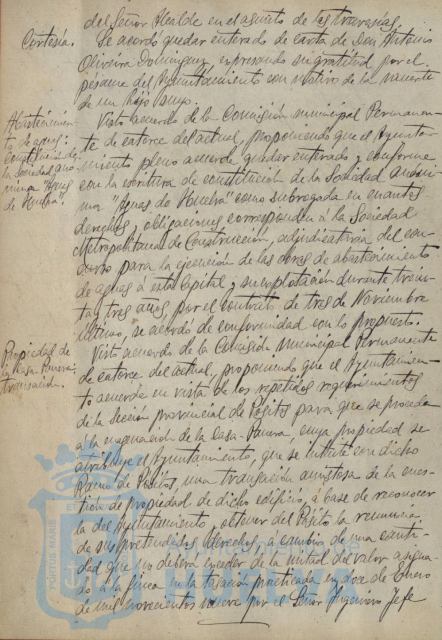 del Señor Alcalde en el asunto de las travesías.
Cortesía.
Se acordó quedar enterado de carta de Don Antonio
Oliveira Domínguez, expresando su gratitud por el
pésame del Ayuntamiento con motivo de la muerte
de un hijo suyo.
Abastecimien-
to de aguas:
constitución de
la sociedad anó-
nima "Aguas
de Huelva".
Visto acuerdo de la Comisión municipal Permanen-
te de catorce del actual, proponiendo que el Ayunta-
miento pleno acuerde quedar enterado y conforme
con la escritura de constitución de la Sociedad anóni-
ma "Aguas de Huelva" como subrogada en cuantos
derechos y obligaciones corresponden á la Sociedad
Metropolitana de Construcción, adjudicataria del con-
curso para la ejecución de las obras de abastecimiento
de aguas á esta Capital y su explotación durante trein-
ta y tres años, por el contrato de tres de Noviembre
último, se acordó de conformidad con lo propuesto.
Propiedad de
la Casa-Panera:
transacción.
Visto acuerdo de la Comisión municipal Permanente
de catorce del actual, proponiendo que el Ayuntamien-
to acuerde en vista de los repetidos requerimientos
de la Sección provincial de Pósitos para que se proceda
á la enagenación de la Casa-Panera, cuya propiedad se
atribuye el Ayuntamiento, que se intente con dicho
Ramo de Pósitos, una transacción amistosa de la cues-
tión de propiedad de dicho edificio, á base de reconocer
la del Ayuntamiento, y obtener del Pósito la renuncia
de sus pretendidos derechos á cambio de una canti-
dad que no deberá exceder de la mitad del valor asigna-
do á la finca en la tasación practicada en doce de Enero
de mil novecientos nueve por el Señor Ingeniero Jefe
PORTUS MARIS ET